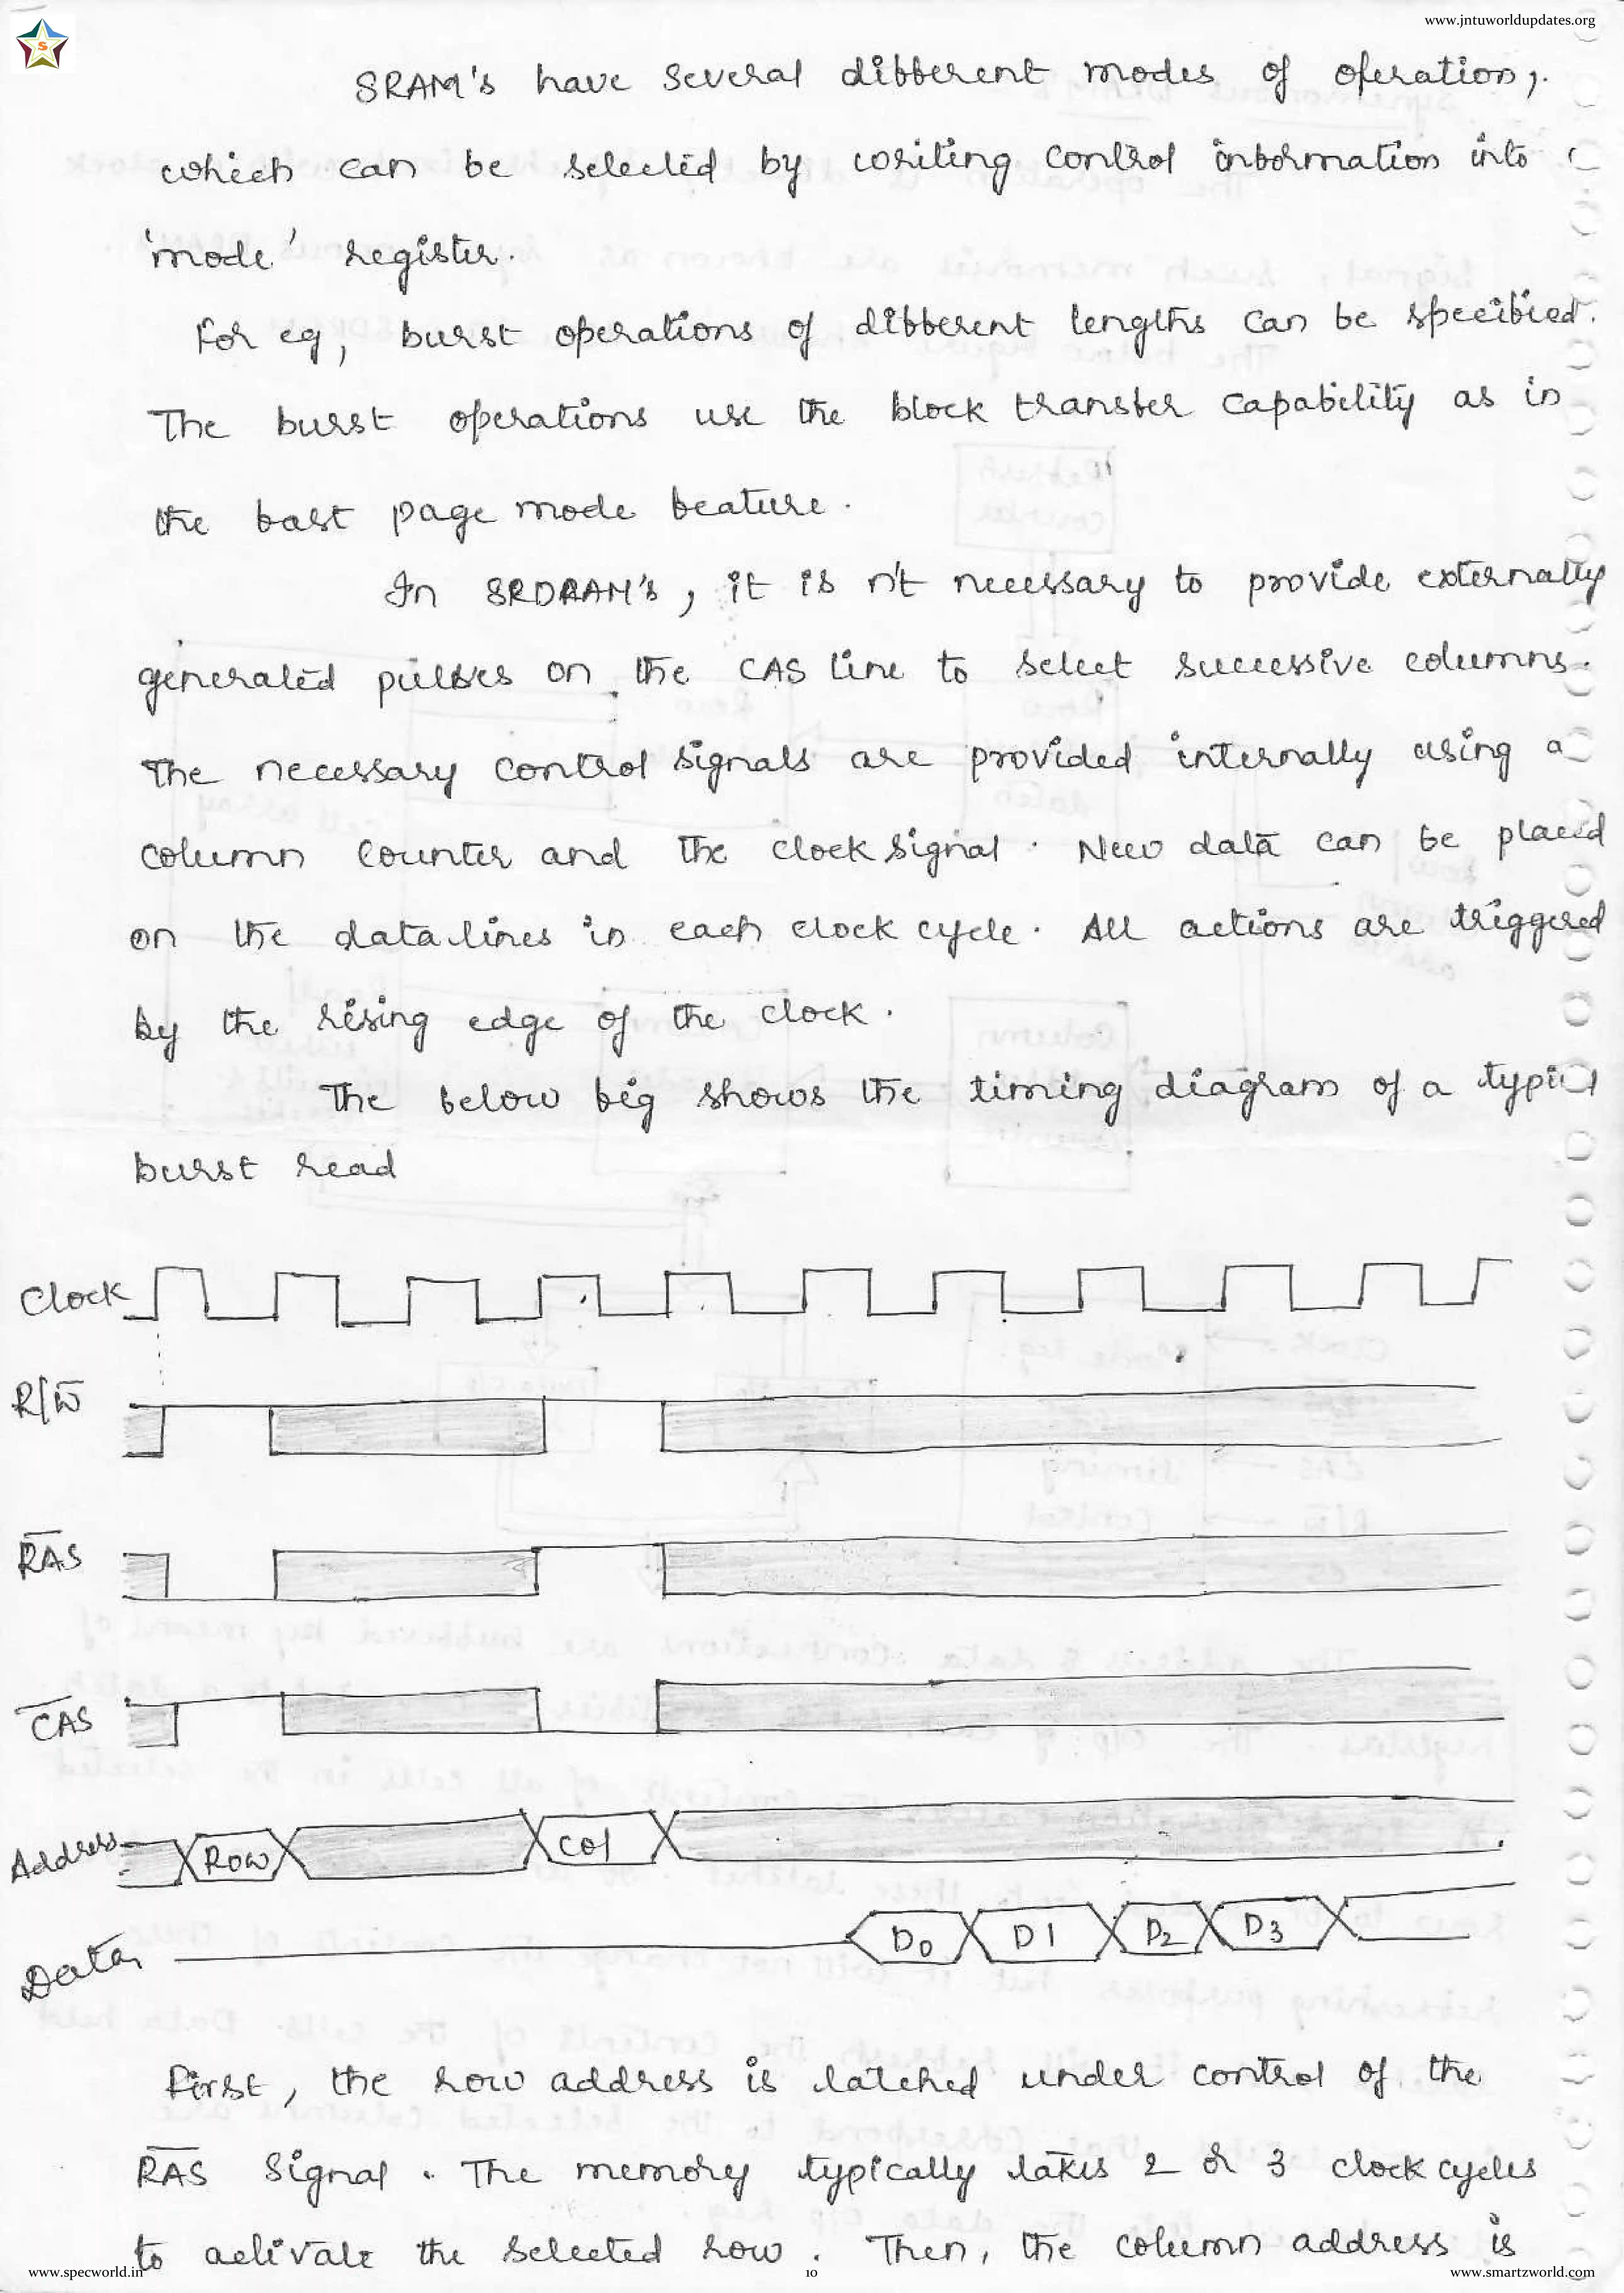 www.jntuworldupdates.org
S
SRAM's have several different modes of operation,
which can be selected by writing control information into
'mode' register.
For eg, burst operations of different lengths can be specified.
The burst operations use the block transfer capability as in
the fast page mode feature.
In SRDRAM's, it is n't necessary to provide externally
generated pulses on the CAS line to select successive columns.
The necessary control signals are provided internally using a
column counter and the clock signal. New data can be placed
on the data lines in each clock cycle. All actions are triggered
by the rising edge of the clock.
The below fig shows the timing diagram of a typical
burst read
Clock
R/W̅
R̅A̅S̅
C̅A̅S̅
Address Row Col
Data D0 D1 D2 D3
First, the row address is latched under control of the
R̅A̅S̅ signal. The memory typically takes 2 or 3 clock cycles
to activate the selected row. Then, the column address is
www.specworld.in 10 www.smartzworld.com